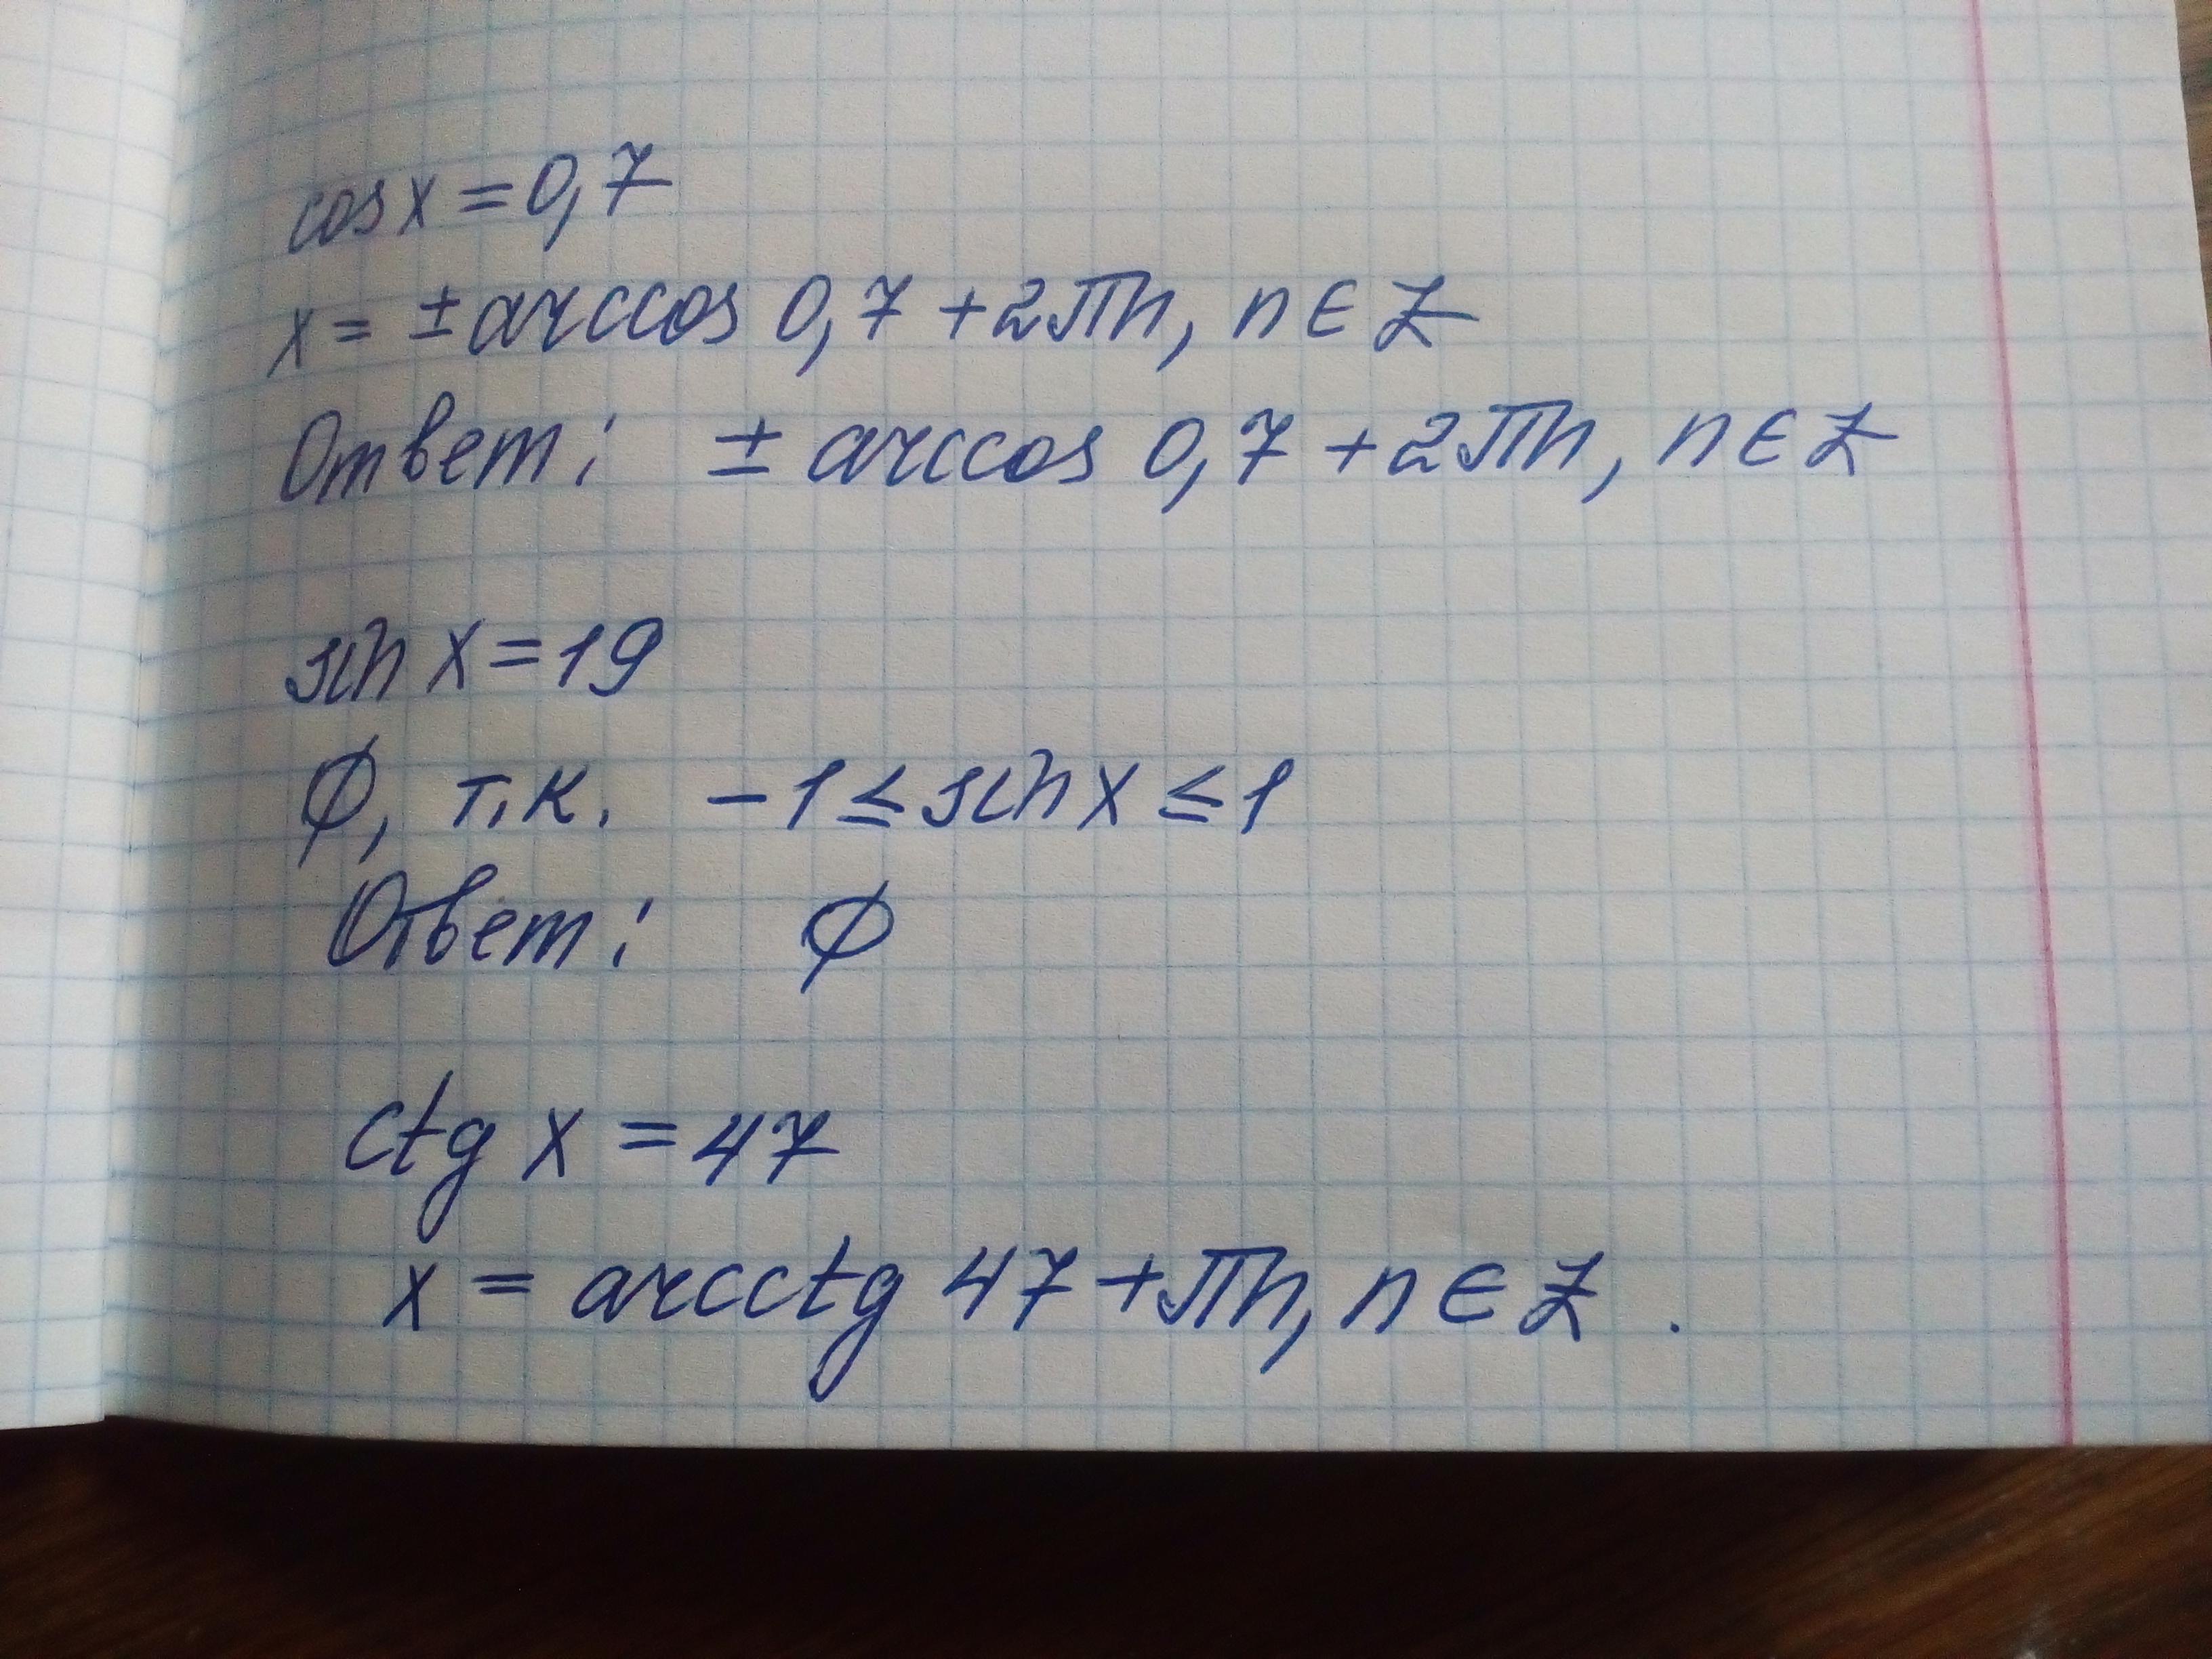 cos x = 0,7
x = ± arccos 0,7 + 2πn, n ∈ Z
Ответ: ± arccos 0,7 + 2πn, n ∈ Z
sin x = 19
∅, т.к. -1 ≤ sin x ≤ 1
Ответ: ∅
ctg x = 47
x = arcctg 47 + πn, n ∈ Z.